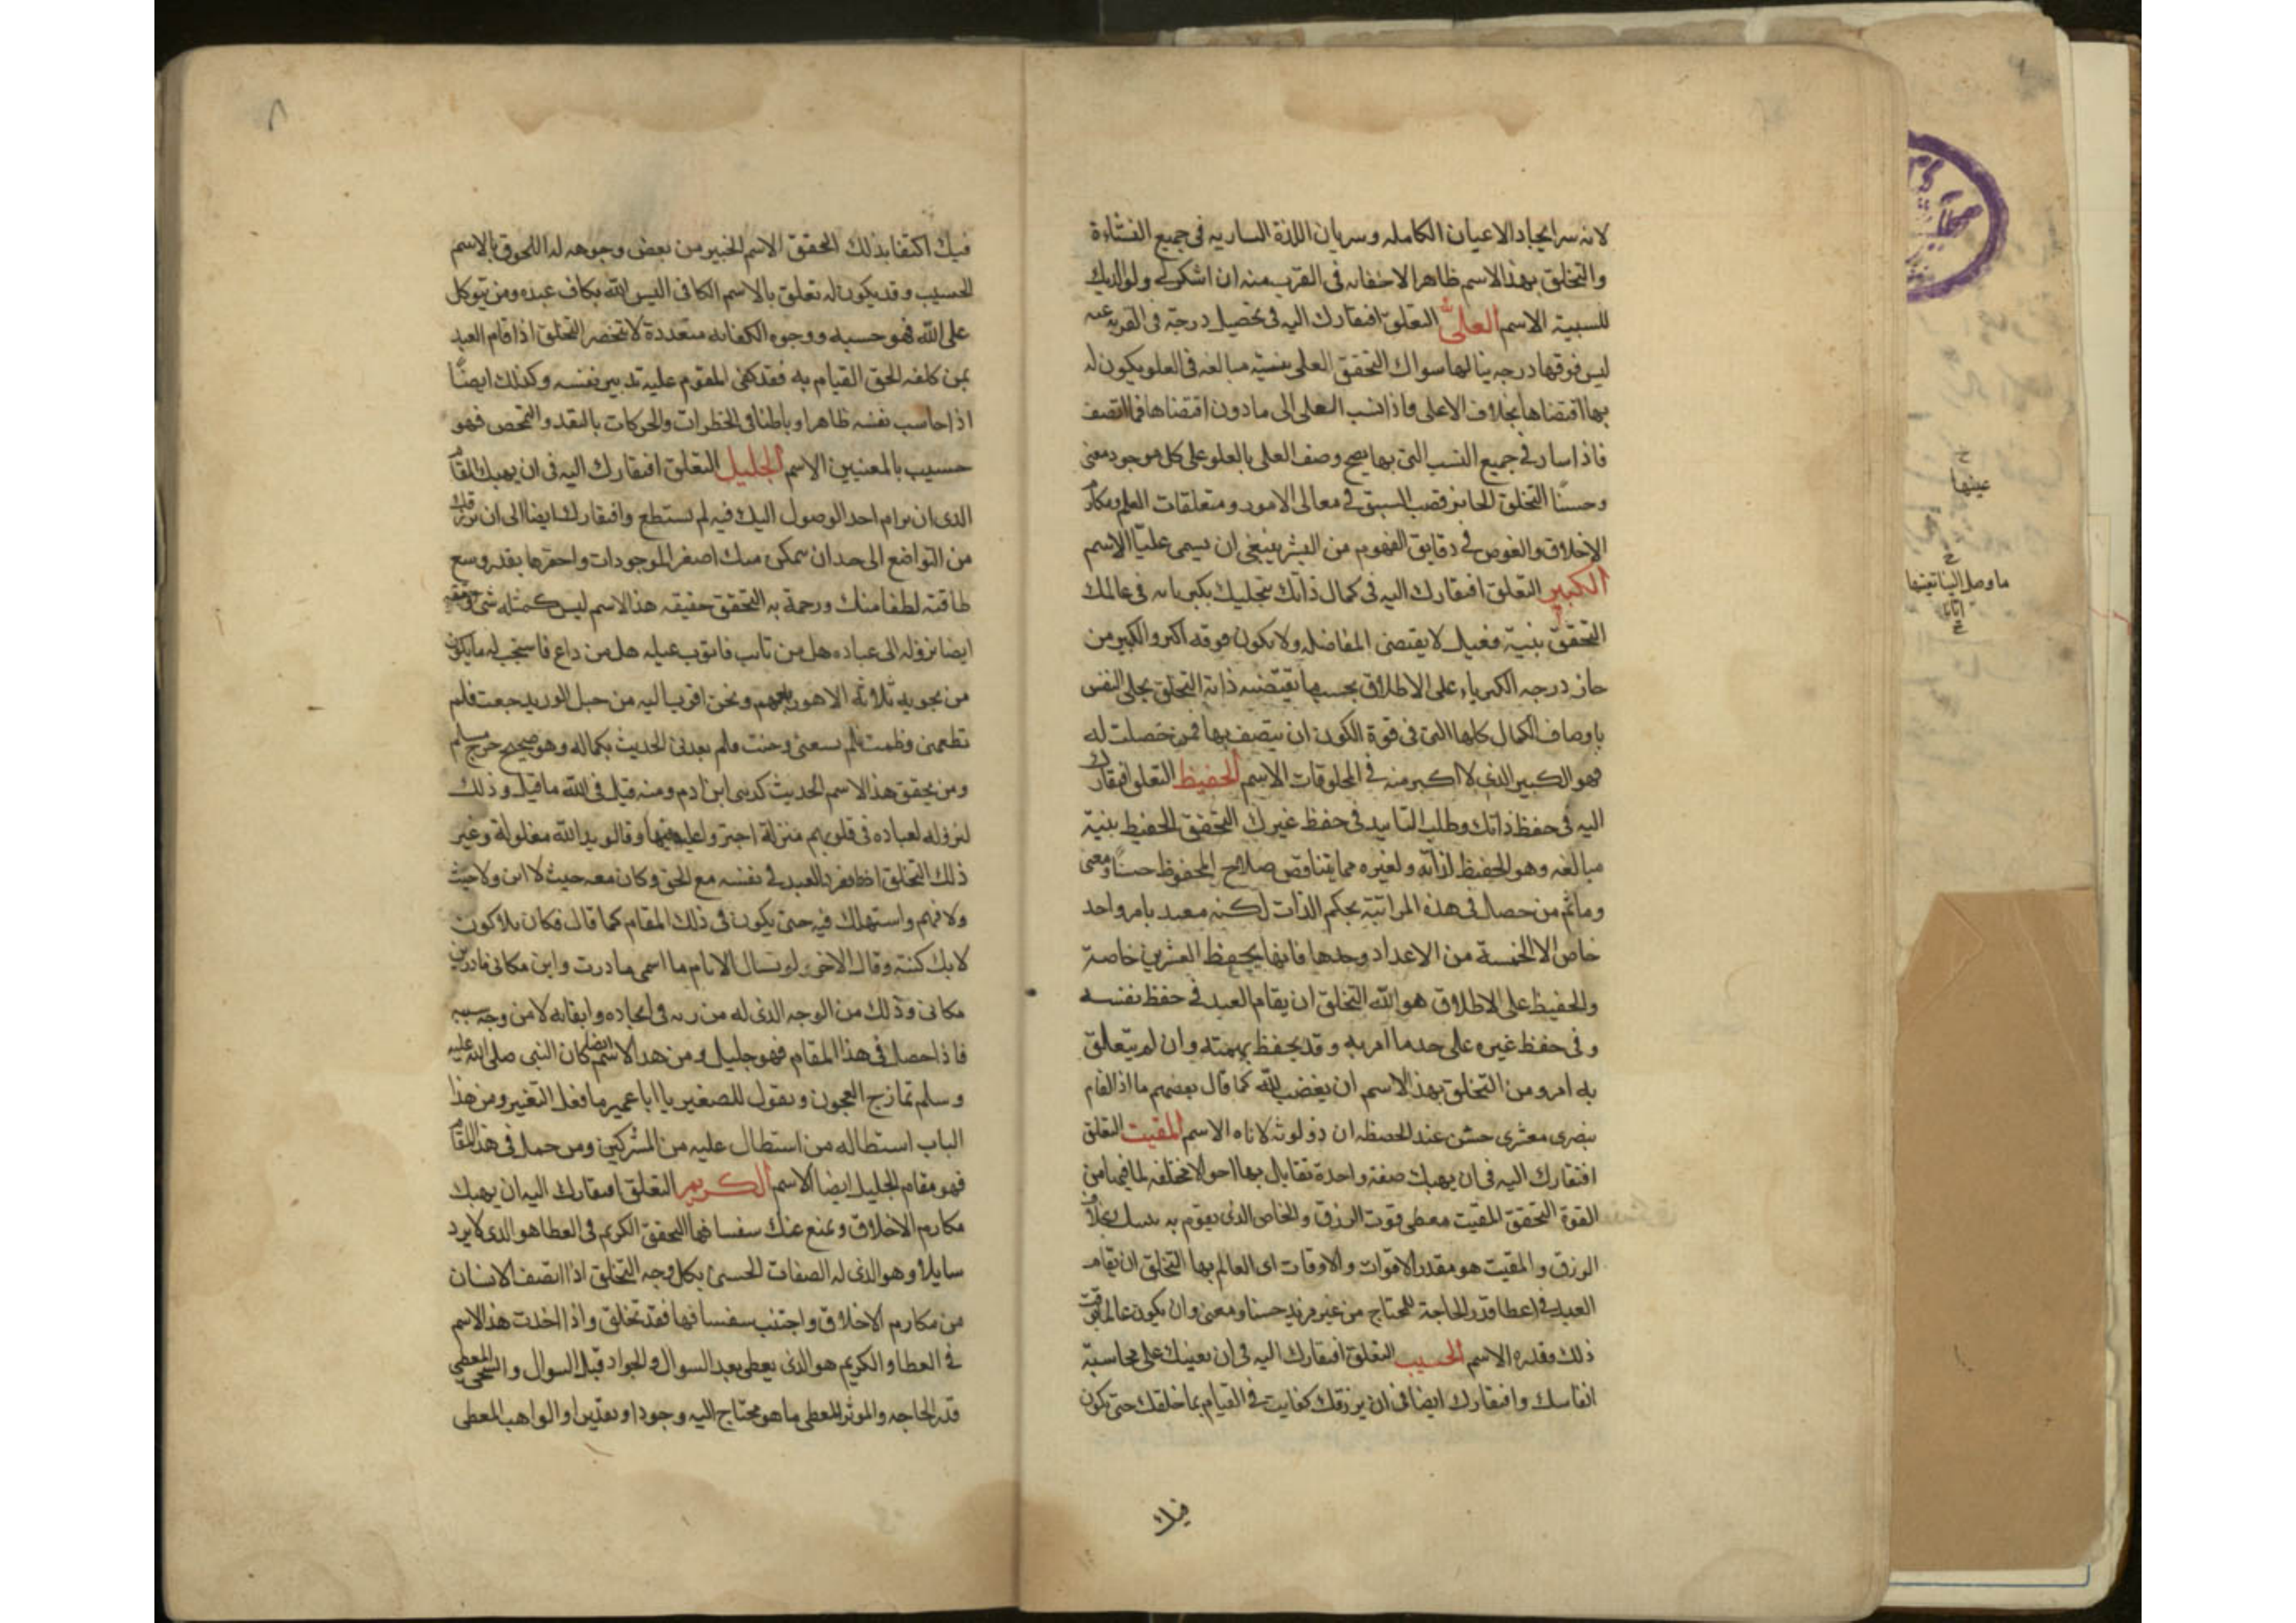 لانه سر ايجاد الاعيان الكامله وسريان اللذة الساريه فى جميع النشاءة
والتخلق بهذا الاسم ظاهر الاخفابه فى القرب منه ان اشكر لى ولوالديك
للسببية الاسم العلى التعلق افتقارك اليه فى تحصيل درجة فى القربة عنه
ليس فوقها درجه ينالها سواك التحقق العلى بنسيته مبالغه فى العلو يكون له
بها اقتضاها بخلاف الاعلى واذا نسب العلى الى مادون اقتضاها فما اتصف
فاذا سار فى جميع النسب التى بها يصح وصف العلى بالعلو على كل موجود معنى
وحسنًا التخلق الحايز قصب السبق فى معالى الامور ومتعلقات العلم ومكارم
الاخلاق والغوص فى دقايق الفهوم من البشر ينبغى ان يسمى عليّا الاسم
الكبير التعلق افتقارك اليه فى كمال ذاتك بتجليك بكبريائه فى عالمك
التحقق بنيته فعيل لا يقتضى المفاضله ولا يكون فوقه اكبر والكبير من
حاز درجه الكبرياء على الاطلاق بحسب ما يقتضيه ذاته التخلق تجلى النفس
باوصاف الكمال كلها التى فى قوة الكون ان يتصف بها فمن حصلت له
فهو الكبير الذى لا اكبر منه فى المخلوقات الاسم الحفيظ التعلق افتقارك
اليه فى حفظ ذاتك وطلب التاييد فى حفظ غيرك التحقق الحفيظ بنية
مبالغه وهو الحفيظ لذاته ولغيره مما يتناقض صلاح المحفوظ حسنًا ومعنى
وماثم من حصل فى هذه المراتبة بحكم الذات لكنه مقيد بامر واحد
خاص الا الخمسة من الاعداد وحدها فانها يحفظ العشرين خاصة
والحفيظ على الاطلاق هو الله التخلق ان يقام العبد فى حفظ نفسه
وفى حفظ غيره على حد ما امر به وقد يحفظ بهمته وان لم يتعلق
به امر ومن التخلق بهذا الاسم ان يغضب لله كما قال بعضهم ما اذا لقام
بنصرى معشرى خشن عند الحفظه ان ذو لوثه لاناه الاسم المقيت التعلق
افتقارك اليه فى ان يهبك صفة واحدة تقابل بها احوالا مختلفه لما فيها من
القوة التحقق المقيت معطى قوت الرزق والخاص الذى يقوم به بخلاف
الرزق والمقيت هو مقدر الاقوات والاوقات اى العالم بها التخلق ان يقام
العبد فى اعطا قدر الحاجة للمحتاج من غير مزيد حسنا ومعنى وان يكون عالما بوقت
ذلك وقدره الاسم الحسيب التعلق افتقارك اليه فى ان يعينك على محاسبة
انفاسك وافتقارك ايضا فى ان يرزقك كفايت فى القيام بما خلقك حتى تكون
فيك
عينها
ما وصل الينا
٨
فيك اكتفا بذلك التحقق الاسم الخبير من بعض وجوهه له اللحوق بالاسم
الحسيب وقد يكون له تعلق بالاسم الكافى اليس الله بكاف عبده ومن يتوكل
على الله فهو حسبه ووجوه الكفايه متعددة لا تنحصر التخلق اذا قام العبد
بمن كلفه الحق القيام به فقد كفى المقوم عليه تدبير نفسه وكذلك ايضًا
اذا حاسب نفسه ظاهرا وباطنا فى الخطرات والحركات بالنقد والتمحص فهو
حسيب بالمعنيين الاسم الجليل التعلق افتقارك اليه فى ان يهبك المقام
الذى ان رام احد الوصول اليك فيه لم يستطع وافتقارك ايضا الى ان يرزقك
من التواضع الى حد ان يتمكن منك اصغر الموجودات واحقرها بقدر وسع
طاقته لطفا منك ورحمة به التحقق حقيقه هذا الاسم ليس كمثله شى وحقيقه
ايضا نزوله الى عباده هل من تايب فاتوب عليه هل من داع فاستجب له ما يكون
من نجويه ثلاثه الا هو رابعهم ونحن اقرب اليه من حبل الوريد جعت فلم
تطعمنى وظمئت فلم تسقنى ومرضت فلم تعدنى الحديث بكماله وهو صحيح خرجه مسلم
ومن تحقق هذا الاسم الحديث كذبنى ابن ادم ومنه قيل فى الله ما قيل وذلك
لنزوله لعباده فى قلوبهم منزلة اجترؤا عليه بها وقالو يد الله مغلولة وغير
ذلك التخلق اذا انفرد العبد فى نفسه مع الحق وكان معه حيث لا اين ولا حيث
ولا فهم واستهلك فيه حتى يكون فى ذلك المقام كما قال فكان بلا كون
لابك كنته وقال الاخر لو تسال الانام ما اسمى ما درت واين مكانى ما درين
مكانى وذلك من الوجه الذى له من ربه فى ايجاده وابقائه لا من وجه سببه
فاذا حصل فى هذا المقام فهو جليل ومن هذا الاسم ايضا كان النبى صلى الله عليه
وسلم يمازح العجوز ويقول للصغير يا ابا عمير ما فعل النغير ومن هذا
الباب استطاله من استطال عليه من المشركين ومن حصل فى هذا المقام
فهو مقام الجليل ايضا الاسم الكريم التعلق افتقارك اليه ان يهبك
مكارم الاخلاق ويمنع عنك سفسافها التحقق الكريم فى العطا هو الذى لا يرد
سايلا وهو الذى له الصفات الحسنى بكل وجه التخلق اذا اتصف الانسان
من مكارم الاخلاق واجتنب سفسافها فقد تخلق واذا اخذت هذا الاسم
فى العطا والكريم هو الذى يعطى بعد السوال والجواد قبل السوال والسخى المعطى
قدر الحاجه والموثر المعطى ما هو محتاج اليه وجودا او تقديرا والواهب المعطى